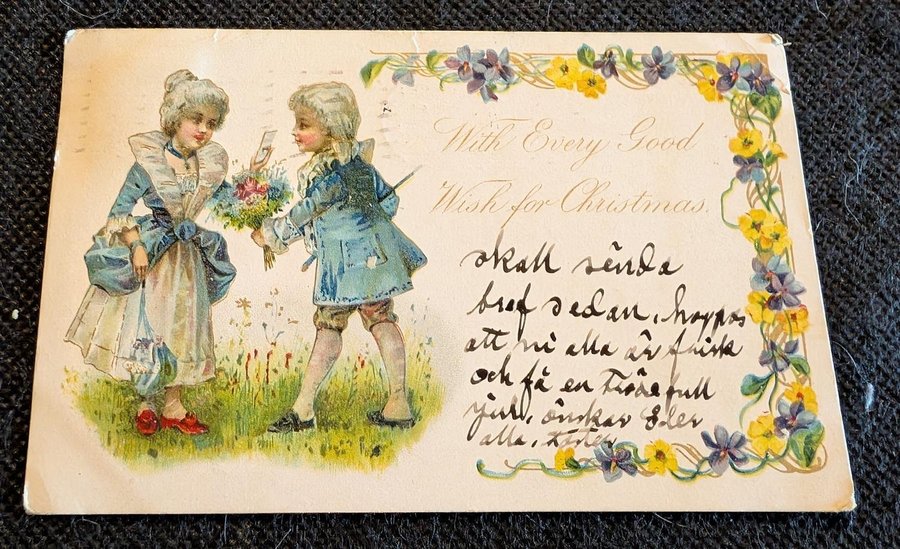 With Every Good
Wish for Christmas.
skall sända
bref sedan, hoppas
att ni alla är frisk
och få en
jul, önskar Eder
alla,